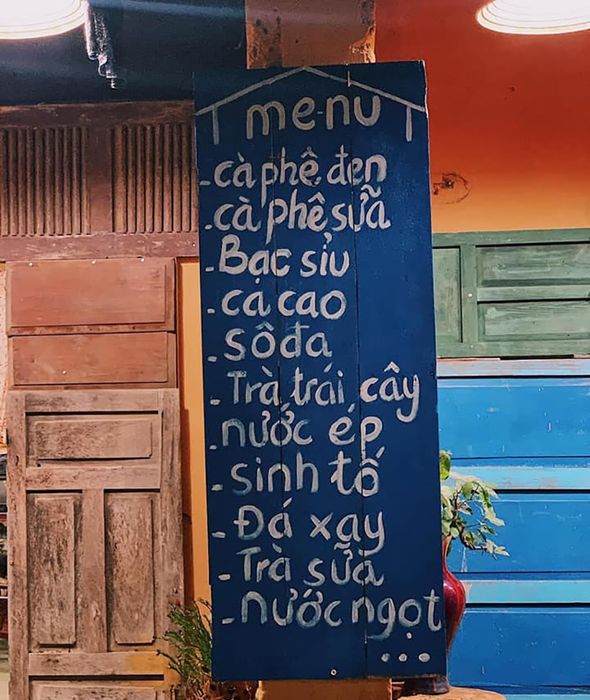 menu
- cà phê đen
- cà phê sữa
- Bạc sỉu
- ca cao
- sôđa
- Trà trái cây
- nước ép
- sinh tố
- Đá xay
- Trà sữa
- nước ngọt
...